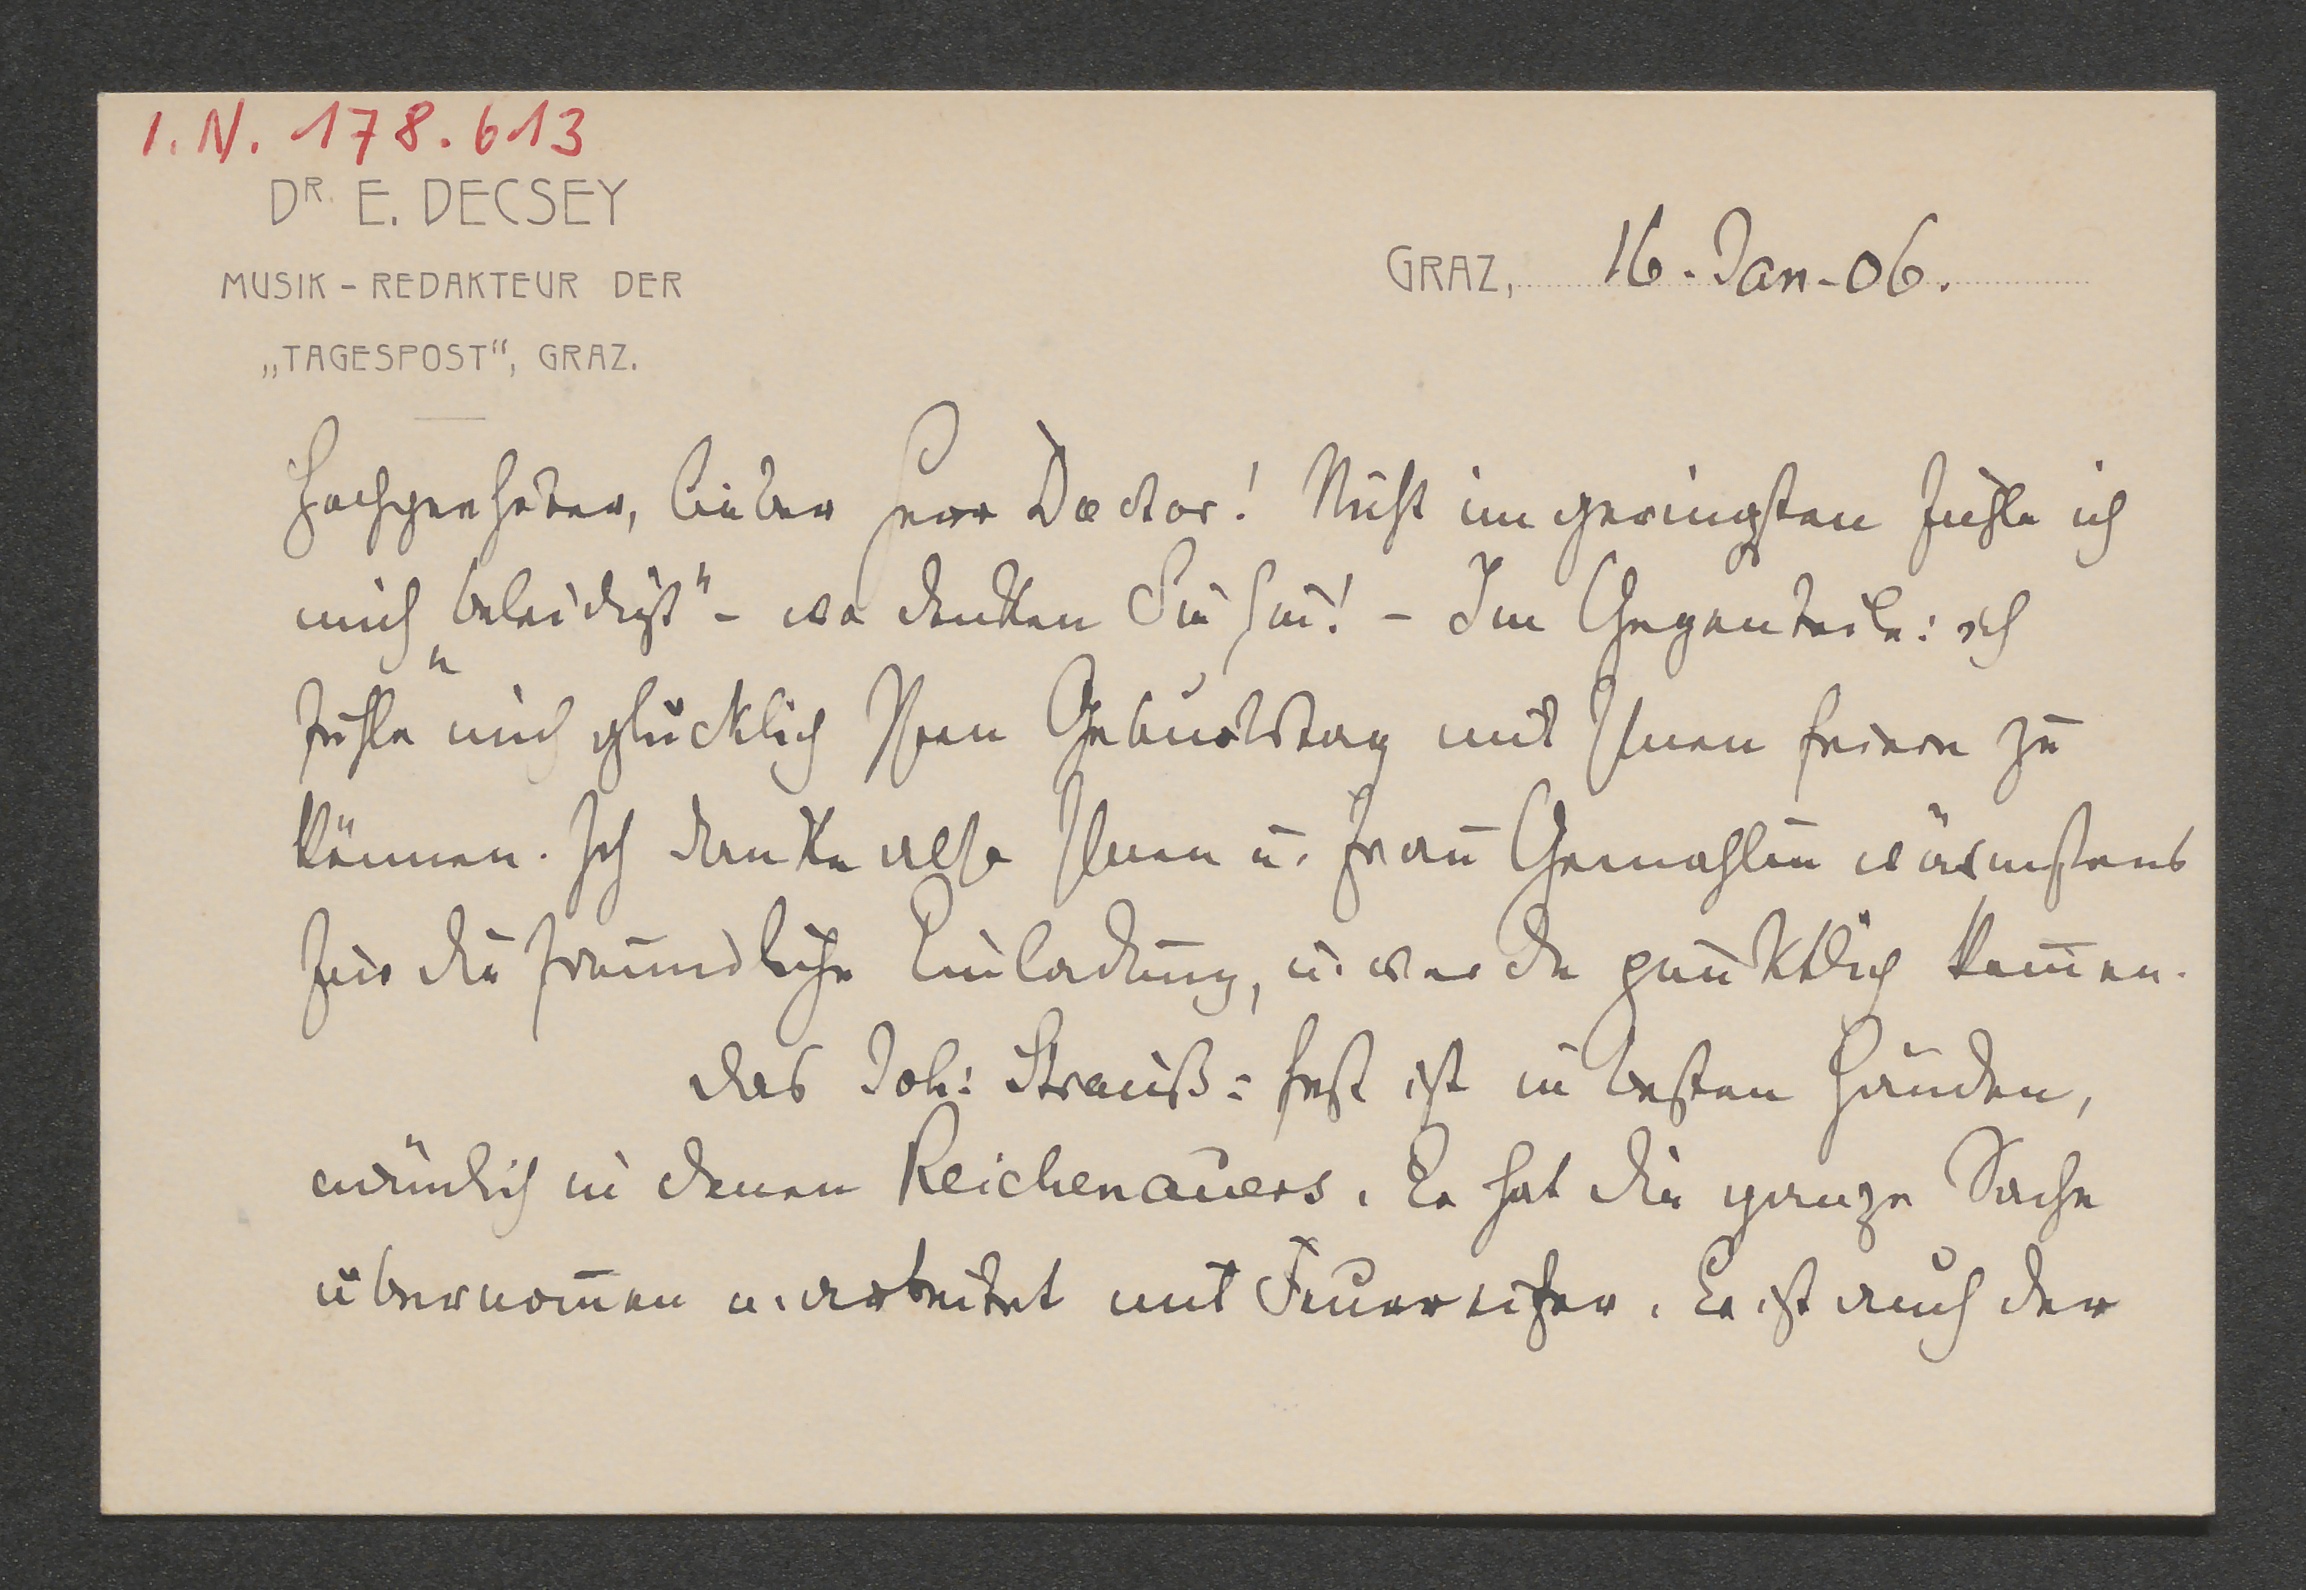 I. N. 178.613
DR. E. DECSEY
MUSIK - REDAKTEUR DER
„TAGESPOST“, GRAZ.
GRAZ, 16. Jan. 06.
Hochgeehrter, lieber Herr Doctor! Nicht im geringsten fühle ich
mich „beleidigt“ - wo denken Sie hin! - Im Gegenteile: ich
fühle mich glücklich Ihren Geburtstag mit Ihnen feiern zu
können. Ich danke also Ihnen u. Frau Gemahlin wärmstens
für die freundliche Einladung, u. werde pünktlich kom̅en.
Das Joh: Strauß=Fest ist in besten Händen,
nämlich in denen Reichenauers. Er hat die ganze Sache
übernom̅en u. arbeitet mit Feuereifer. Er ist auch der